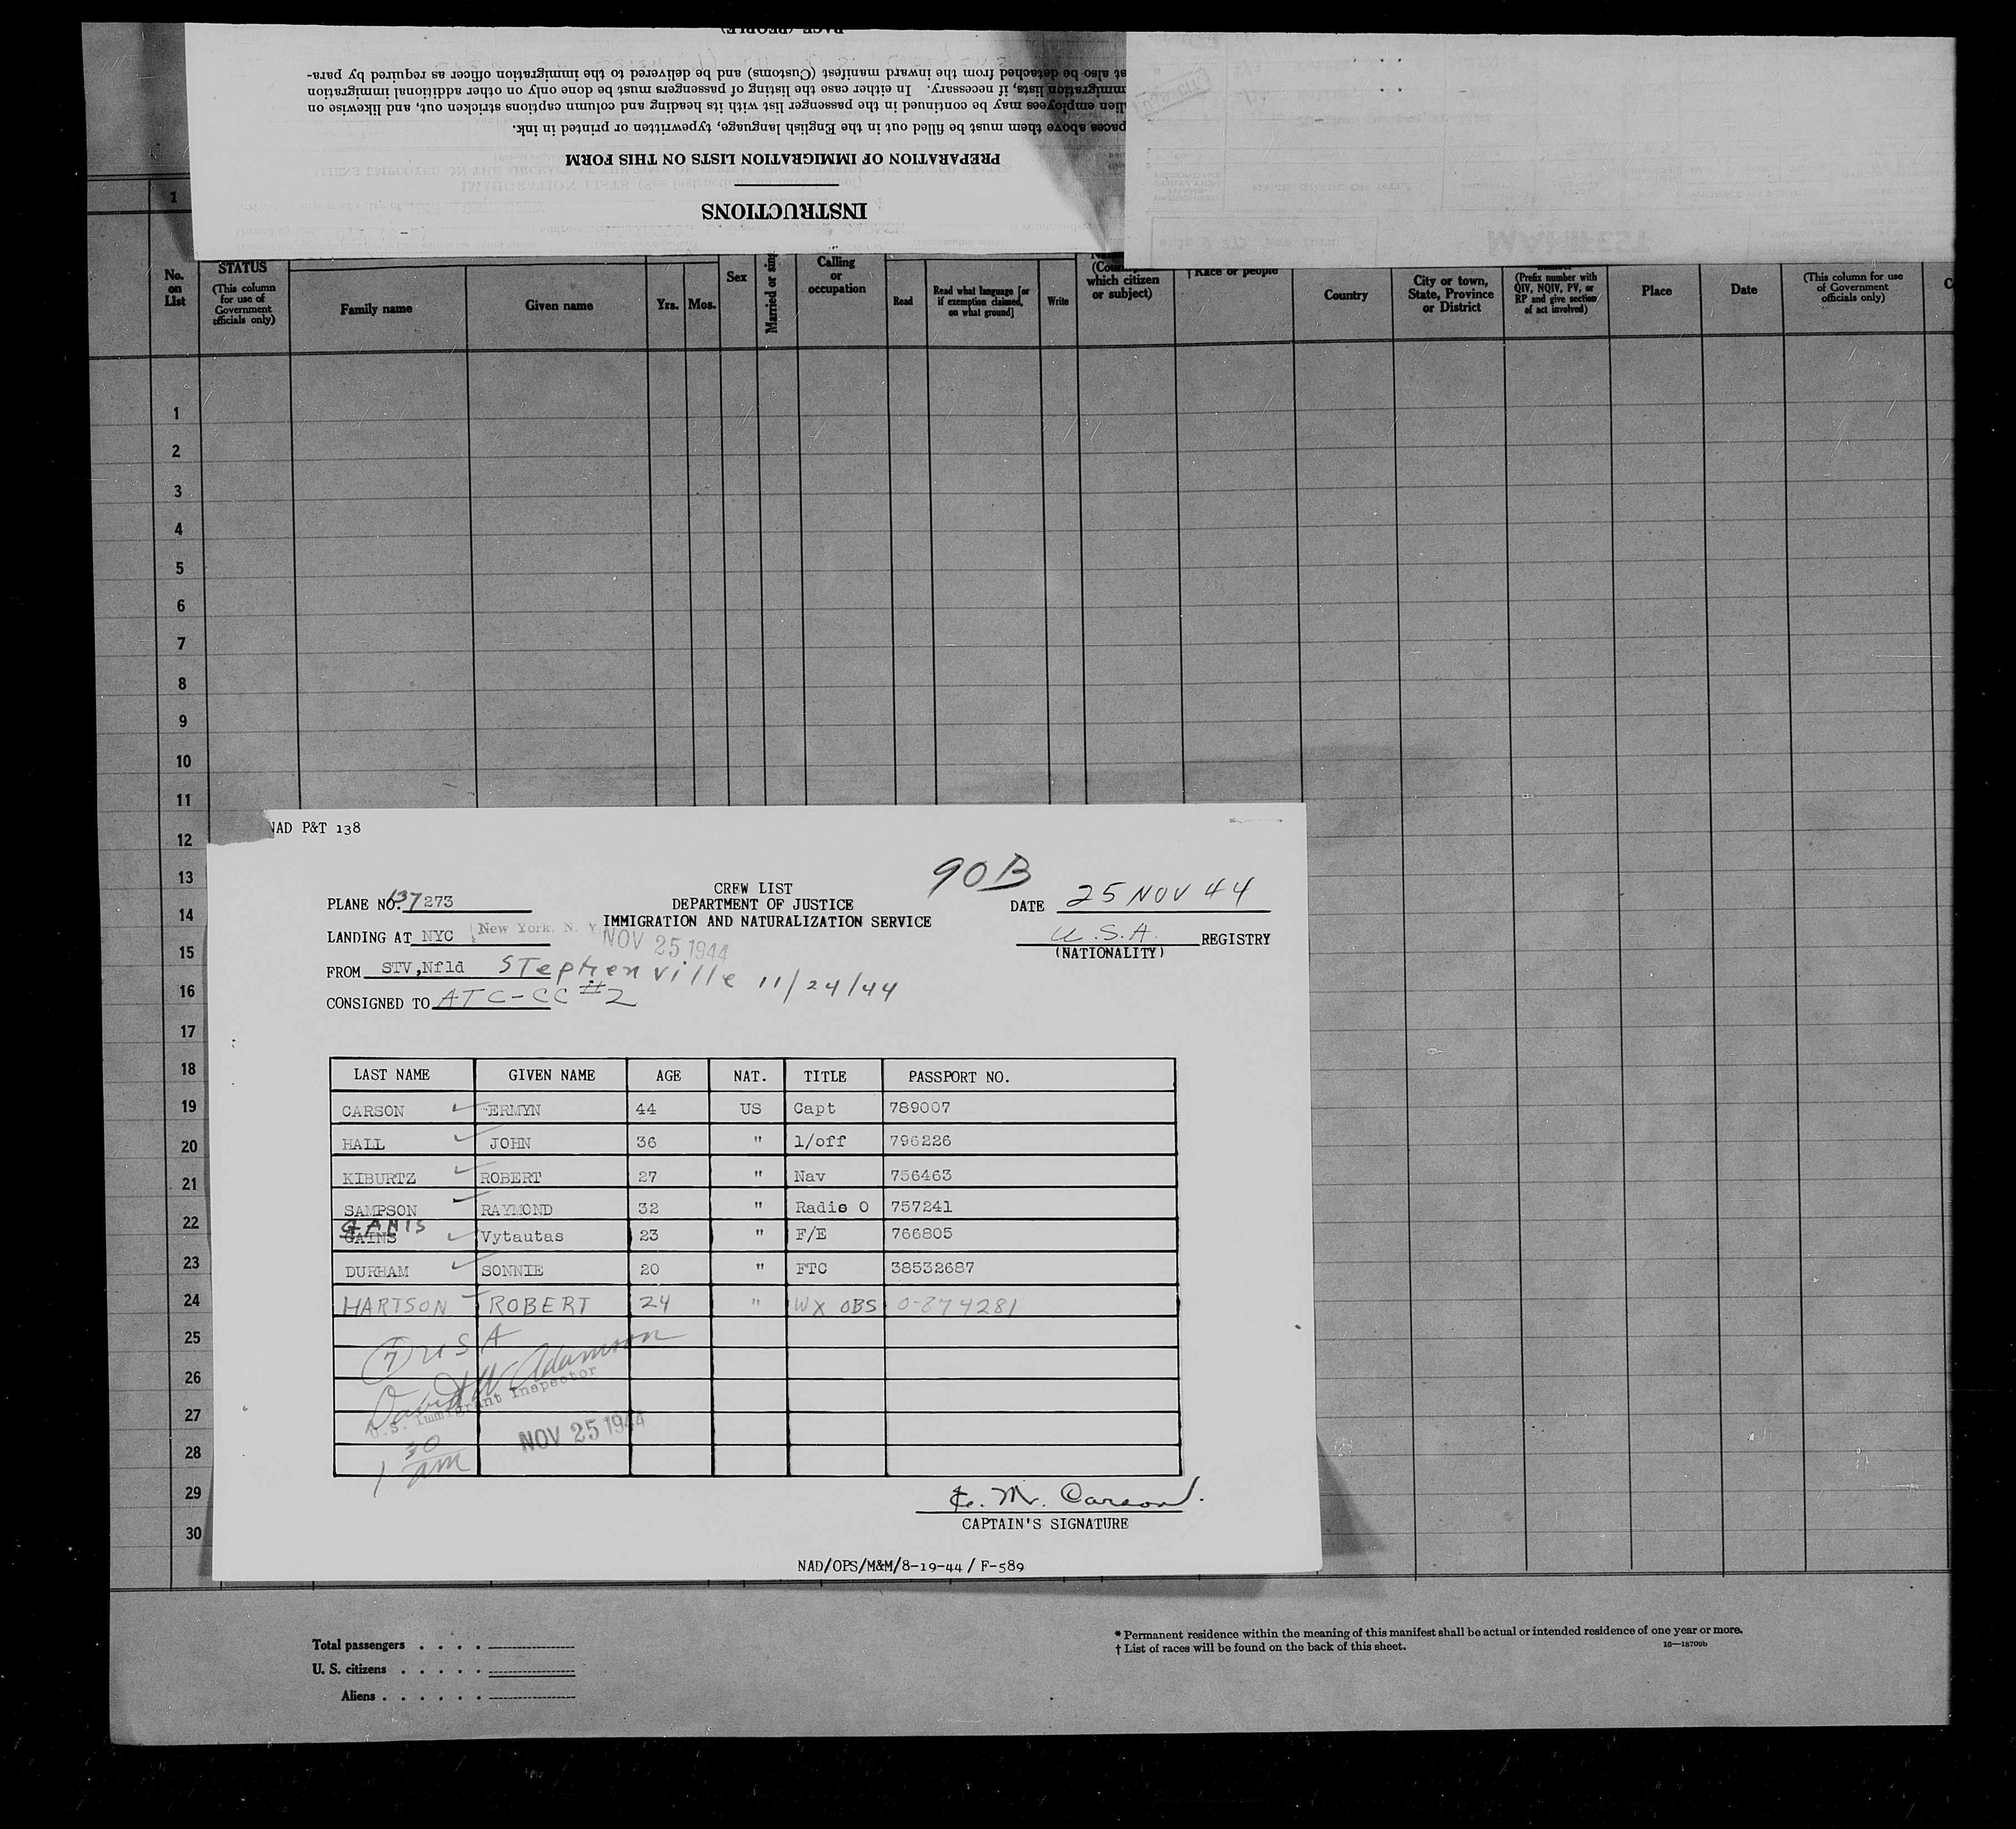 RACE (PEOPLE)
st also be detached from the inward manifest (Customs) and be delivered to the immigration officer as required by para-
mmigration lists, if necessary. In either case the listing of passengers must be done only on other additional immigration
lien employees may be continued in the passenger list with its heading and column captions stricken out, and likewise on
paces above them must be filled out in the English language, typewritten or printed in ink.
PREPARATION OF IMMIGRATION LISTS ON THIS FORM
INSTRUCTIONS
MANIFEST
1
No. on List
STATUS
(This column for use of Government officials only)
Family name
Given name
Yrs.
Mos.
Sex
Married or sing
Calling or occupation
Read
Read what language [or if exemption claimed, on what ground]
Write
which citizen or subject)
† Race or people
Country
City or town, State, Province or District
(Prefix number with QIV, NQIV, PV, or RP and give section of act involved)
Place
Date
(This column for use of Government officials only)
1
2
3
4
5
6
7
8
9
10
11
12
13
14
15
16
17
18
19
20
21
22
23
24
25
26
27
28
29
30
NAD P&T 138
90B
CREW LIST
DEPARTMENT OF JUSTICE
IMMIGRATION AND NATURALIZATION SERVICE
PLANE NO. 137273
DATE 25 NOV 44
LANDING AT NYC New York, N. Y.
NOV 25 1944
U.S.A. REGISTRY
(NATIONALITY)
FROM STV,Nfld Stephenville 11/24/44
CONSIGNED TO ATC-CC #2
LAST NAME GIVEN NAME AGE NAT. TITLE PASSPORT NO.
CARSON ERMYN 44 US Capt 789007
HALL JOHN 36 " 1/off 796226
KIBURTZ ROBERT 27 " Nav 756463
SAMPSON RAYMOND 32 " Radio O 757241
GANIS
GAINS Vytautas 23 " F/E 766805
DURHAM SONNIE 20 " FTC 38532687
HARTSON ROBERT 24 " WX OBS O-874281
7 USA
David W Adamson
U.S. Immigrant Inspector
NOV 25 1944
1 30 am
E. M. Carson
CAPTAIN'S SIGNATURE
NAD/OPS/M&M/8-19-44 / F-589
Total passengers . . . .
U. S. citizens . . . . .
Aliens . . . . . .
* Permanent residence within the meaning of this manifest shall be actual or intended residence of one year or more.
† List of races will be found on the back of this sheet.
16—18709b